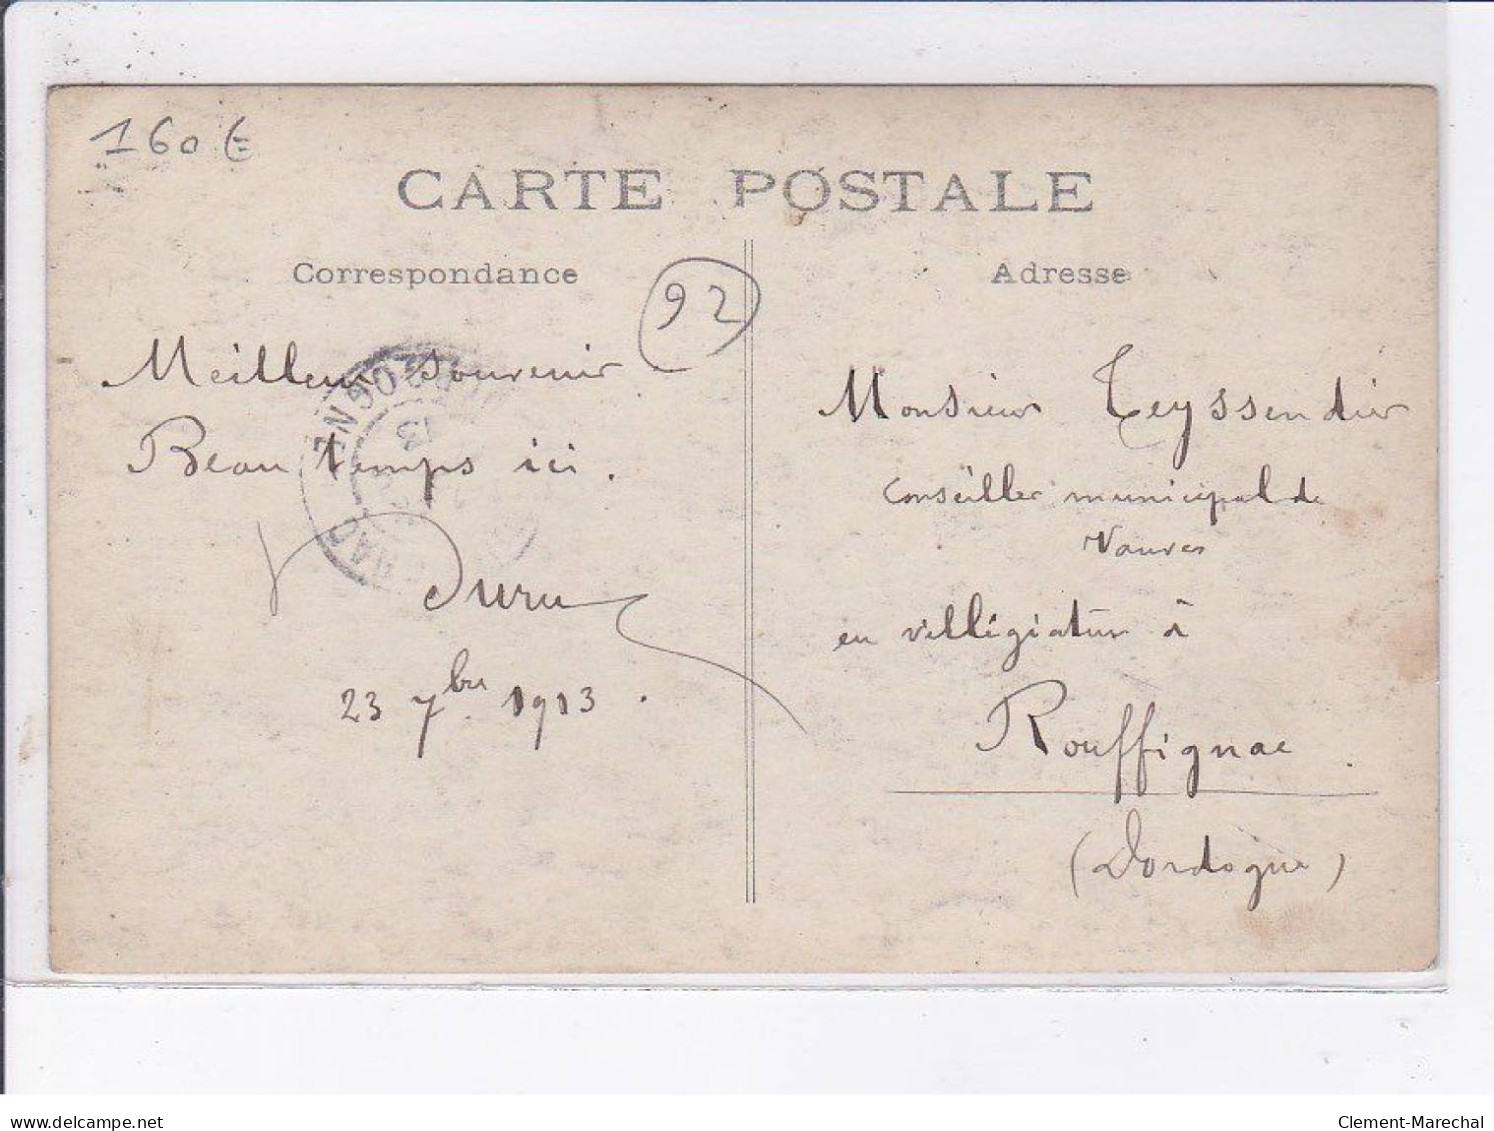 160 €
CARTE POSTALE
Correspondance
92
Adresse
Meilleur souvenir
Beau temps ici.
Duru
23 7bre 1913.
Monsieur Teyssendier
Conseiller municipal de
Vanves
en villégiature à
Rouffignac
(Dordogne)
DORDOGNE
13
delcampe.net
Clement-Marechal